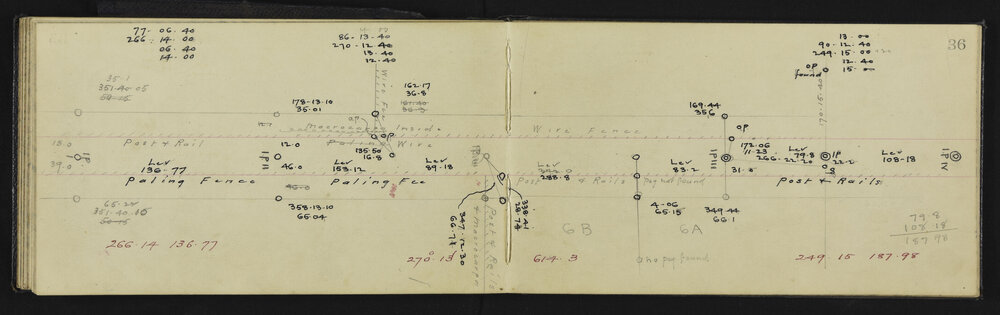 77 · 06 · 40
266 · 14 · 00
06 · 40
14 · 00
86 - 13 - 40
270 - 12 - 40
13 - 40
12 - 40
13 - 00
90 - 12 - 40
249 · 15 - 00
12 - 40
15 - 00
36
OP
found
35·1
351·40·05
178-13-10
35·01
162·17
36·8
Wire Fce
169·44
35·6
OP
OP
Macrocarpa Inside
Wire Fence
Post & Rail
Paling Wire
13·0
39·0
IP
Lev
136·77
Paling Fence
IP II
12·0
46·0
Lev
153·12
Paling Fce
135·50
16·8
Lev
89·18
Lev
288·8
Post & Rails
Peg not found
Lev
83·2
IP III
172·06
11·23
266-22-20
31·0
Lev
79·8
IP
22·2
Post & Rails
Lev
108-18
IP IV
65·22
351·40·05
358-13-10
65·04
347-12-30
66·71
Post & Rails
& Macrocarpa
338·41
28·74
4-06
65·15
349·44
66·1
6B
6A
no peg found
79·8
108·18
187·98
266·14 136·77
270° 13
614·3
249 15 187·98